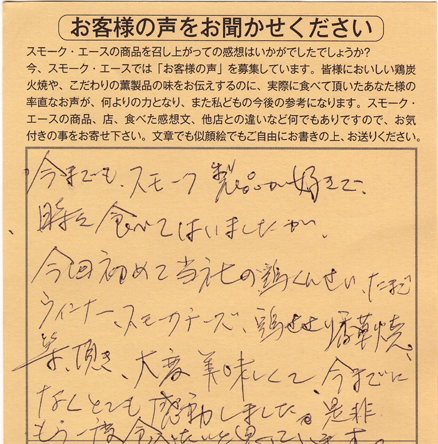 お客様の声をお聞かせください
スモーク・エースの商品を召し上がっての感想はいかがでしたでしょうか?
今、スモーク・エースでは「お客様の声」を募集しています。皆様においしい鶏炭
火焼や、こだわりの薫製品の味をお伝えするのに、実際に食べて頂いたあなた様の
率直なお声が、何よりの力となり、また私どもの今後の参考になります。スモーク・
エースの商品、店、食べた感想文、他店との違いなど何でもありですので、お気
付きの事をお寄せ下さい。文章でも似顔絵でもご自由にお書きの上、お送りください。
今までも、スモーク製品が好きで、
時々食べてはいましたが、
今回初めて当社の鶏くんせい、たまご
ウィンナー、スモークチーズ、鶏せせり香草焼、
等、頂き、大変美味しくて、今までに
なくとても感動しました。是非
もう一度食べたいと思っています。